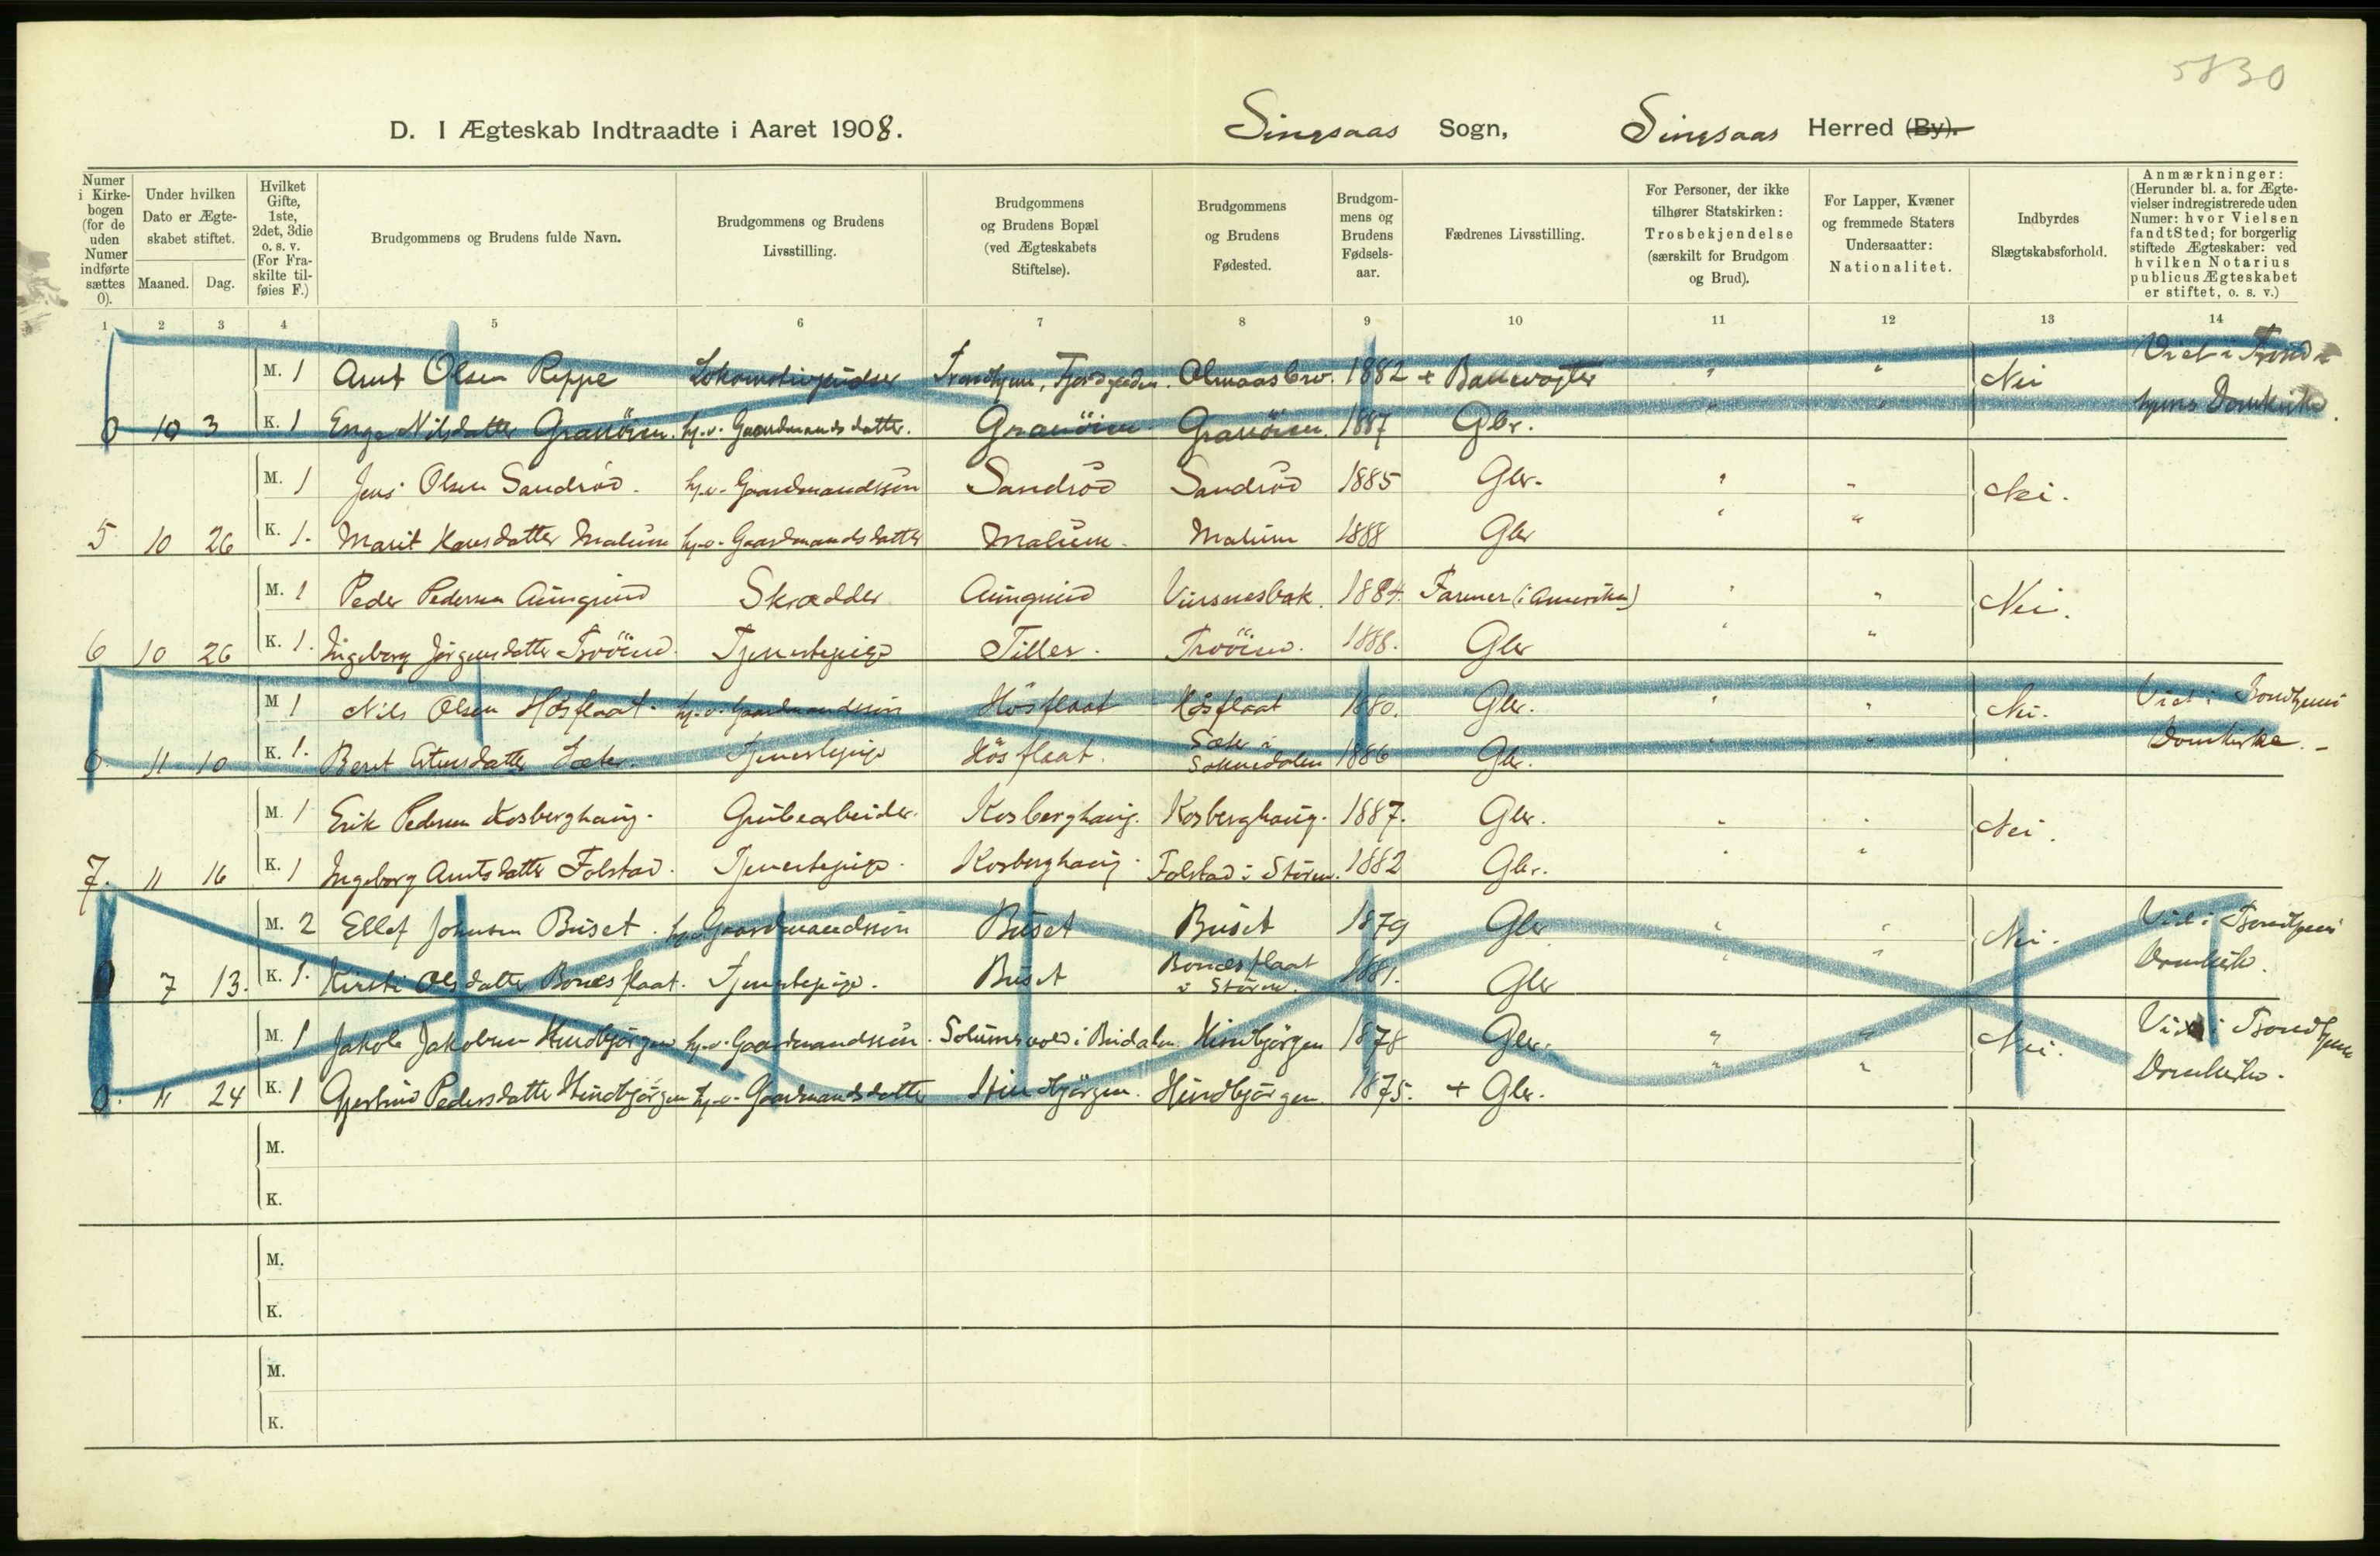 5830
D. I Ægteskab Indtraadte i Aaret 1908. Singsaas Sogn, Singsaas Herred (By).
Numer i Kirkebogen (for de uden Numer indførte sættes 0).
Under hvilken Dato er Ægteskabet stiftet.
Maaned. Dag.
Hvilket Gifte, 1ste, 2det, 3die o. s. v. (For Fraskilte tilføies F.)
Brudgommens og Brudens fulde Navn.
Brudgommens og Brudens Livsstilling.
Brudgommens og Brudens Bopæl (ved Ægteskabets Stiftelse).
Brudgommens og Brudens Fødested.
Brudgommens og Brudens Fødselsaar.
Fædrenes Livsstilling.
For Personer, der ikke tilhører Statskirken: Trosbekjendelse (særskilt for Brudgom og Brud).
For Lapper, Kvæner og fremmede Staters Undersaatter: Nationalitet.
Indbyrdes Slægtskabsforhold.
Anmærkninger: (Herunder bl. a. for Ægtevielser indregistrerede uden Numer: hvor Vielsen fandt Sted; for borgerlig stiftede Ægteskaber: ved hvilken Notarius publicus Ægteskabet er stiftet, o. s. v.)
1 2 3 4 5 6 7 8 9 10 11 12 13 14
M. 1 Arnt Olsen Reppe Lokomotivpudser Trondhjem, 1882 + Banevogter " " Nei Viet i Trond
0 10 3 K. 1 Nilsdatter Granöien hj.v. Gaardmandsdatter. Granöien Granöien. 1887 Gbr. " " hjems Domkirke.
M. 1 Jens Olsen Sandröd. hj.v. Gaardmandssön Sandröd Sandröd 1885 Gbr. " " Nei.
5 10 26 K. 1. Marit Hansdatter Malum hj.v. Gaardmandsdatter Malum. Malum 1888 Gbr " "
M. 1 Peder Pedersen Aungrind Skrædder Aungrind Vinsnesbak. 1884. Farmer (i Amerika) " " Nei.
6 10 26 K. 1. Ingeborg Jörgensdatter Tjenestepige Tiller. 1888. Gbr " "
M 1 Nils Olsen Hösflaat. hj.v. Gaardmandssön Hösflaat Hösflaat 1880. Gbr. " " Nei. Viet i Trondhjems
0 11 10 K. 1. Beret Estensdatter Sæter. Tjenestepige Hösflaat. Sæter i Soknedalen 1886 Gbr. " " Domkirke. -
M. 1 Erik Pedersen Kosberghaug. Grubearbeider. Kosberghaug. Kosberghaug. 1887. Gbr. " " Nei.
7. 11 16 K. 1 Ingeborg Arntsdatter Folstad. Tjenestepige. Kosberghaug. Folstad i Stören. 1882 Gbr. " "
M. 2 Ellef Johnsen Buset. hj.v. Gaardmandssön Buset Buset 1879 Gbr " " Nei. Viet i Trondhjems
0 7 13. K. 1. Kirsti Olsdatter Bonesflaat. Tjenestepige. Buset Bonesflaat i Stören. 1881. Gbr " " Domkirke.
M. 1 Jakob Jakobsen Hindbjörgen hj.v. Gaardmandssön. i Budalen Hindbjörgen 1878 Gbr. " " Nei. Viet i Trondhjems
0. 11 24 K. 1 Gjertrud Pedersdatter Hindbjörgen hj.v. Gaardmandsdatter Hindbjörgen. Hindbjörgen. 1875. + Gbr. " " Domkirke.
M.
K.
M.
K.
M.
K.